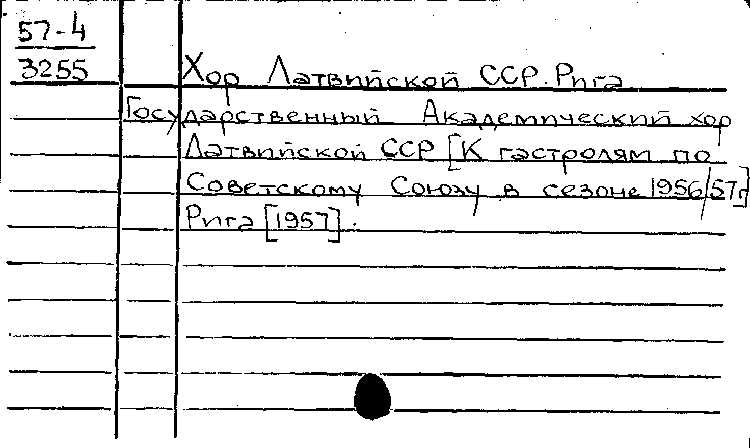 57-4
3255
Хор Латвийской ССР. Рига
Государственный Академический хор
Латвийской ССР [К гастролям по
Советскому Союзу в сезоне 1956/57г]
Рига [1957].